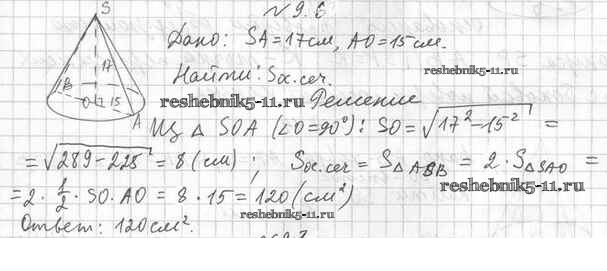 №9.6
S
17
B
O
15
A
Дано: SA=17см, AO=15см.
Найти: Sос.сеч.
reshebnik5-11.ru
reshebnik5-11.ru
Решение
Из △ SOA (∠O=90°): SO=√17²-15² =
=√289-225 = 8 (см); Sос.сеч = S△ASB = 2·S△SAO =
reshebnik5-11.ru
=2·1/2·SO·AO = 8·15=120 (см²)
reshebnik5-11.ru
Ответ: 120см².